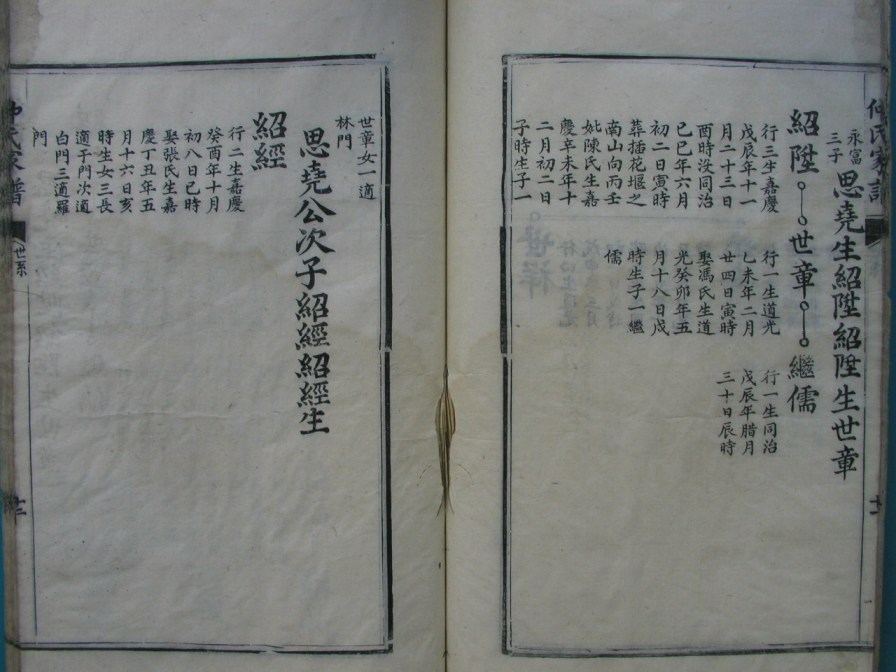 永富
三子
思堯生紹陞紹陞生世章
紹陞
世章
繼儒
行三生嘉慶
戊辰年十一
月二十三日
酉時没同治
己巳年六月
初二日寅時
葬插花堰之
南山向丙壬
妣陳氏生嘉
慶辛未年十
二月初二日
子時生子一
行一生道光
乙未年二月
廿四日寅時
娶馮氏生道
光癸卯年五
月十八日戌
時生子一繼
儒
行一生同治
戊辰年腊月
三十日辰時
世章女一適
林門
思堯公次子紹經紹經生
紹經
行二生嘉慶
癸酉年十月
初八日巳時
娶張氏生嘉
慶丁丑年五
月十六日亥
時生女三長
適于門次適
白門三適羅
門
仲氏家譜
世系